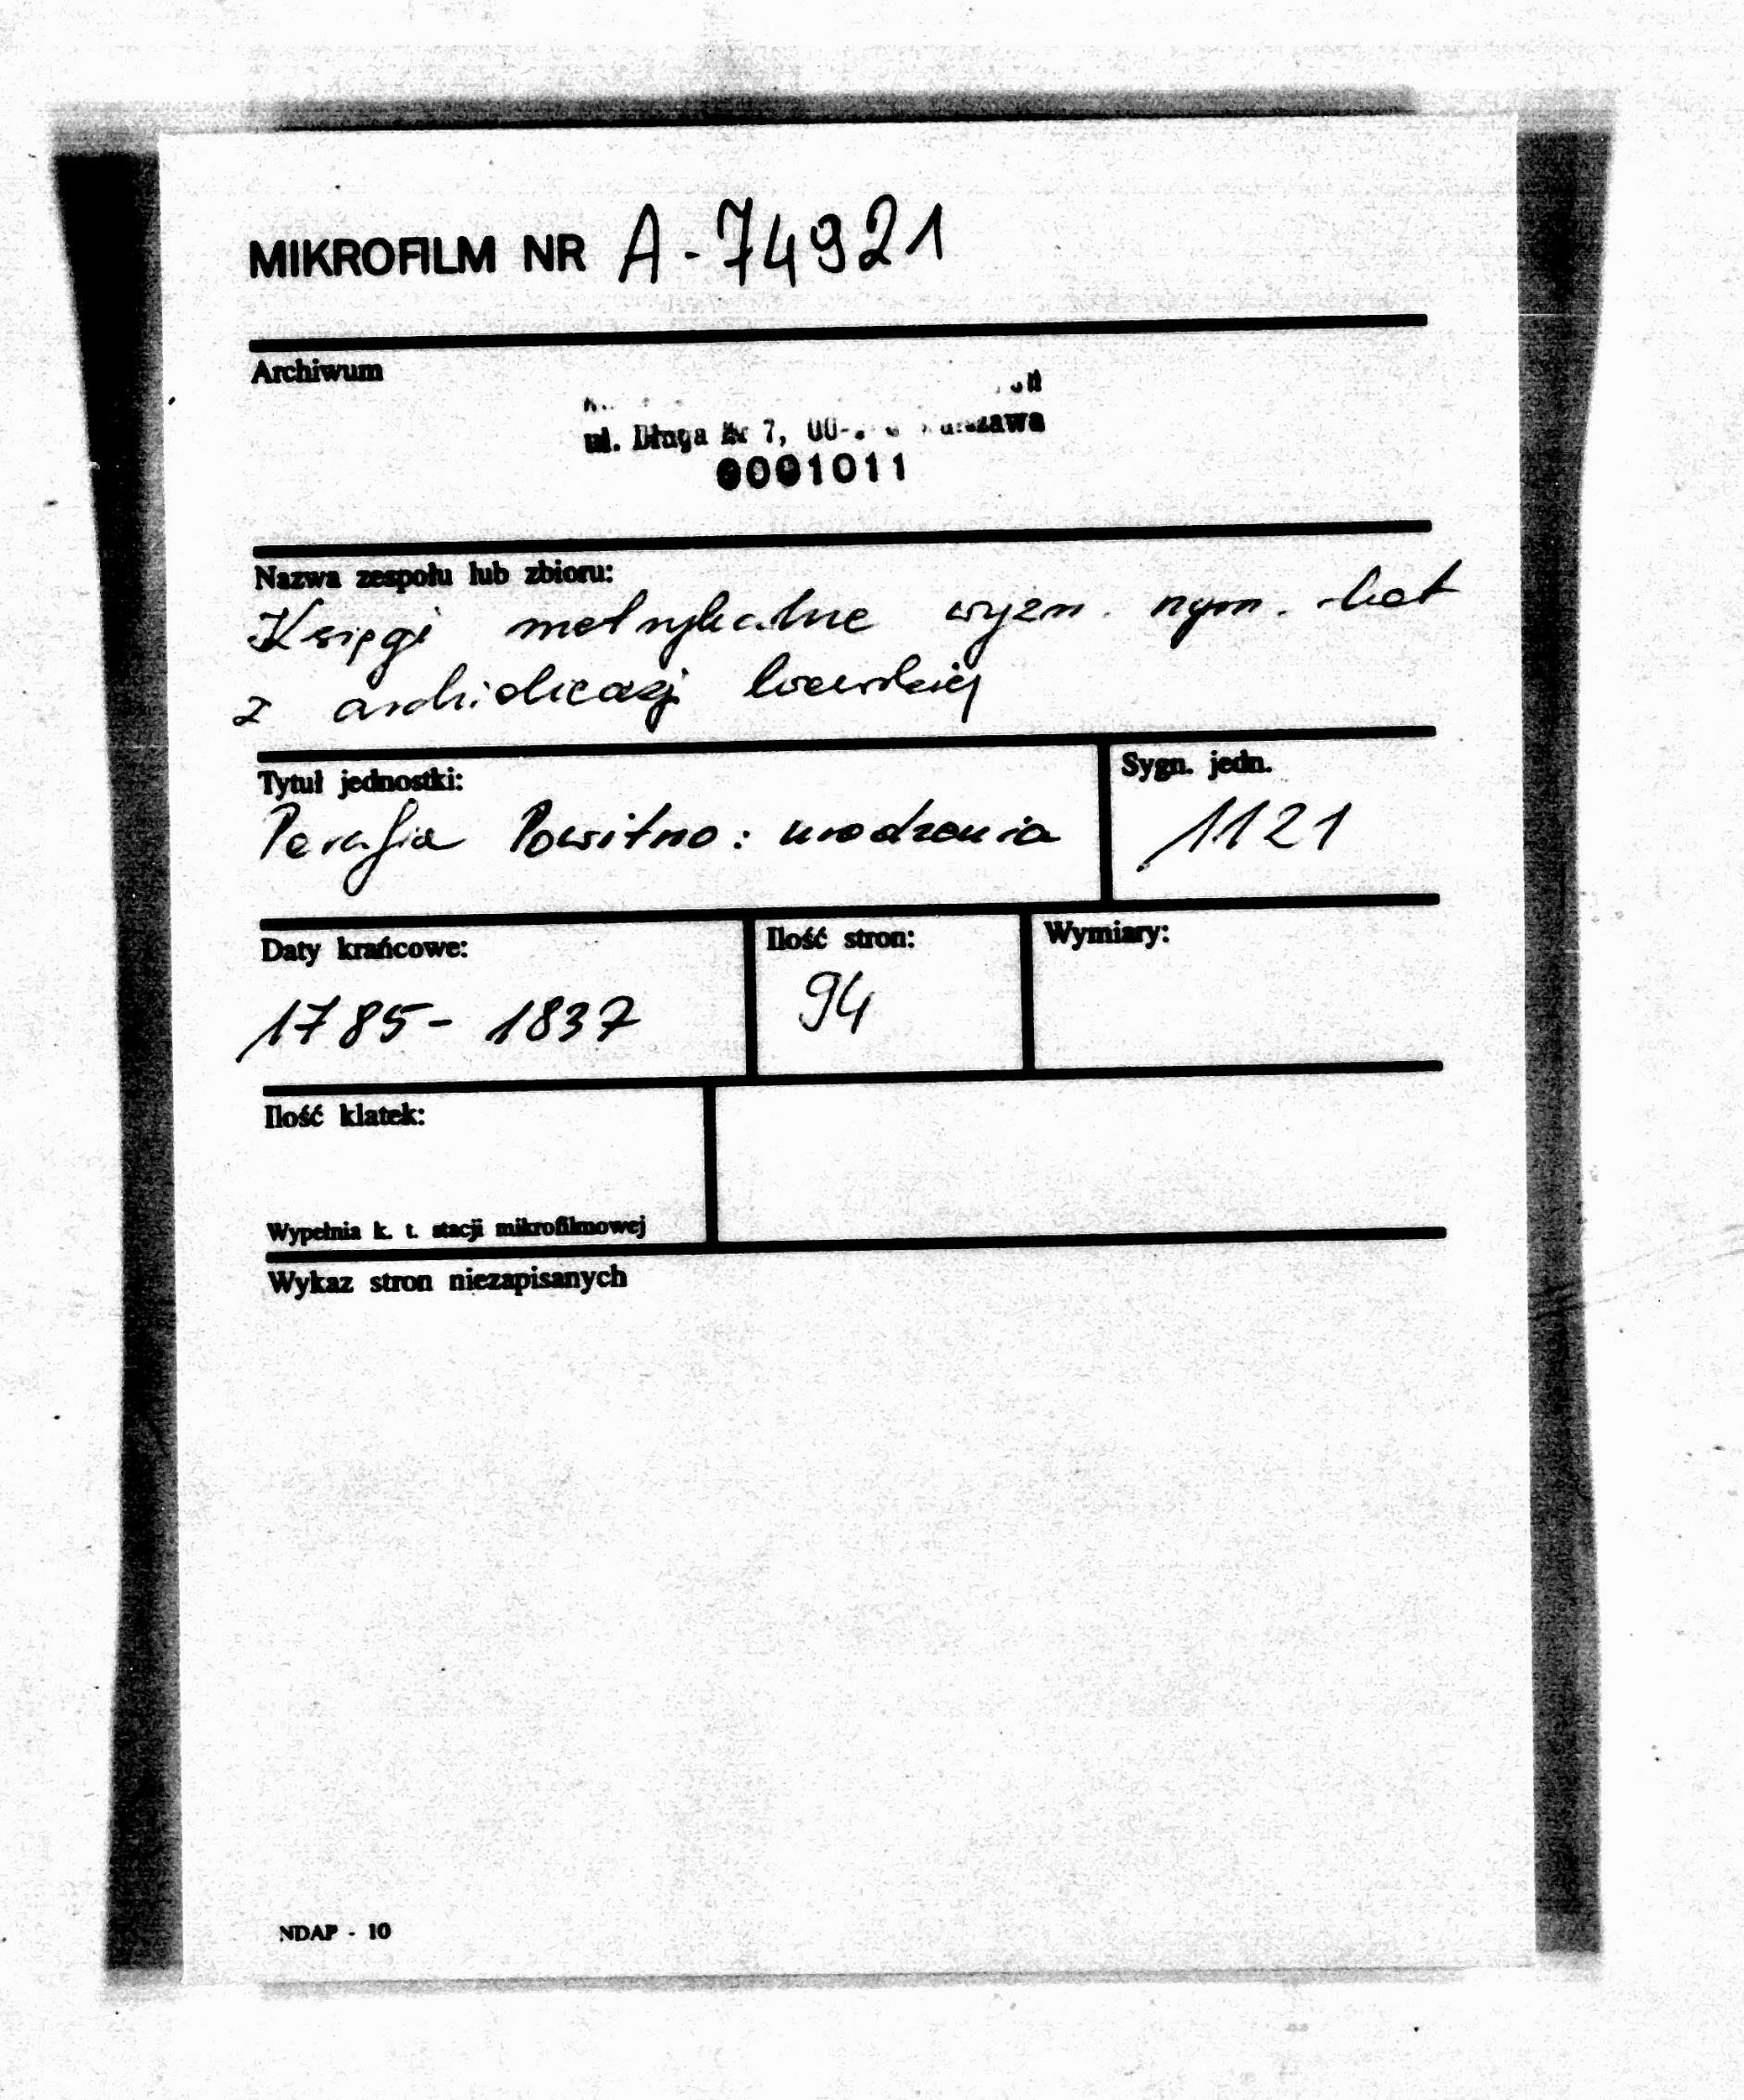 MIKROFILM NR A-74921
Archiwum
ul. Długa Nr 7, 00-
0001011
Nazwa zespołu lub zbioru:
Księgi metrykalne wyzn. rzym. kat
z archidiecezji lwowskiej
Tytuł jednostki:
Sygn. jedn.
Parafia Powitno: urodzenia
1121
Daty krańcowe:
Ilość stron:
Wymiary:
1785- 1837
94
Ilość klatek:
Wypełnia k. t. stacji mikrofilmowej
Wykaz stron niezapisanych
NDAP - 10